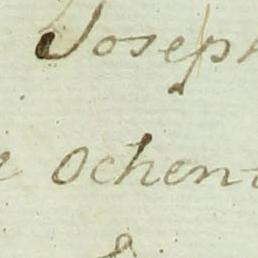 Joseph
e ochent